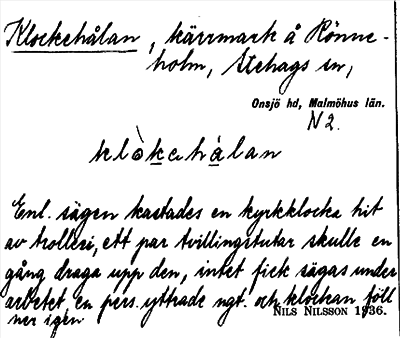 Klockehålan, kärrmark å Rönne-
holm, Stehags sn,
Onsjö hd, Malmöhus län.
N2.
klòkehålan
Enl. sägen kastades en kyrkklocka hit
av trolleri, ett par tvillingstutar skulle en
gång draga upp den, intet fick sägas under
arbetet en pers. yttrade ngt. och klockan föll
ner igen
NILS NILSSON 1936.